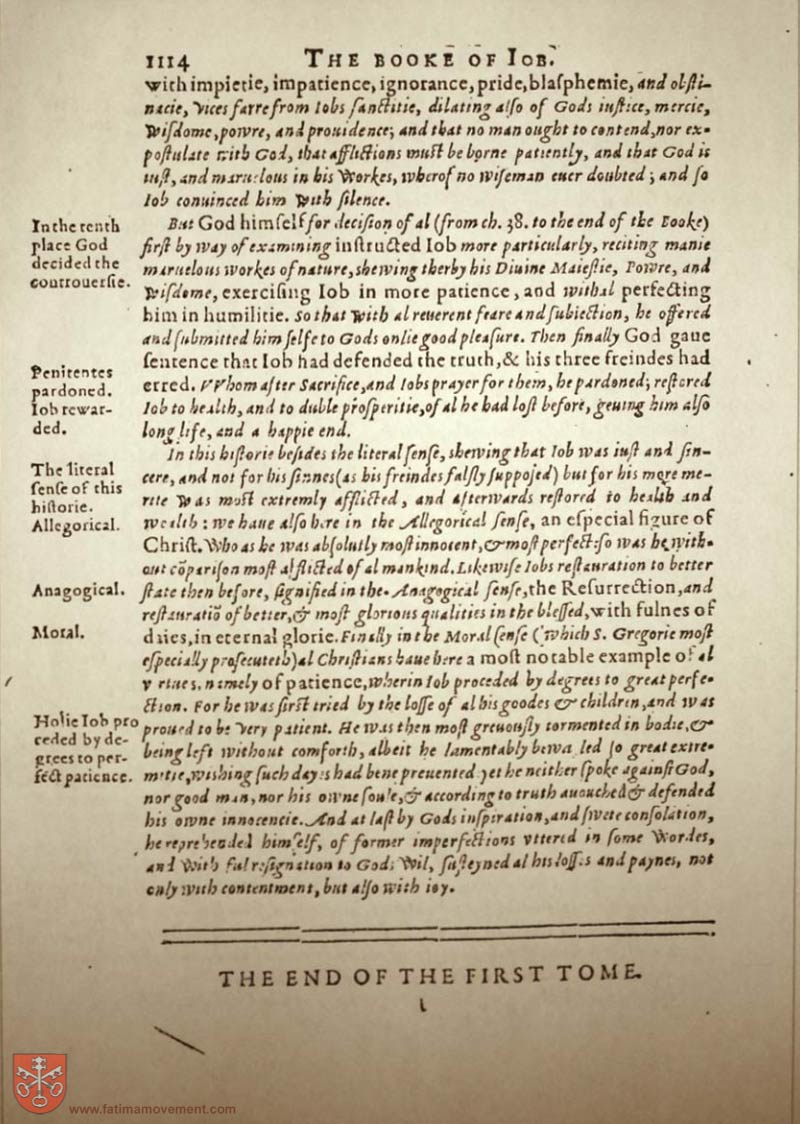 1114 THE BOOKE OF IOB.
with impietie, impatience, ignorance, pride, blaſphemie, and obſti-
nacie, vices farre from Iobs ſanctitie, dilating alſo of Gods iuſtice, mercie,
wiſdome, powre, and prouidence; and that no man ought to contend, nor ex-
poſtulate with God, that afflictions muſt be borne patiently, and that God is
iuſt, and maruelous in his workes, wherof no wiſeman euer doubted; and ſo
Iob conuinced him with ſilence.
In the tenth
place God
decided the
controuerſie.
But God himſelf for deciſion of al (from ch. 38. to the end of the Booke)
firſt by way of examining inſtructed Iob more particularly, reciting manie
maruelous workes of nature, shewing therby his Diuine Maieſtie, Powre, and
wiſdome, exerciſing Iob in more patience, and withal perfecting
him in humilitie. So that with al reuerent feare and ſubiection, he offered
and ſubmitted him ſelfe to Gods onlie good pleaſure. Then finally God gaue
ſentence that Iob had defended the truth, & his three freindes had
Penitentes
pardoned.
Iob rewar-
ded.
erred. VVhom after Sacrifice, and Iobs prayer for them, he pardoned; reſtored
Iob to health, and to duble proſperitie, of al he had loſt before, geuing him alſo
long life, and a happie end.
The literal
ſenſe of this
hiſtorie.
Allegorical.
In this hiſtorie beſides the literal ſenſe, shewing that Iob was iuſt and ſin-
cere, and not for his ſinnes (as his freindes falſly ſuppoſed) but for his more me-
rite was moſt extremly afflicted, and afterwards reſtored to health and
wealth: we haue alſo here in the Allegorical ſenſe, an eſpecial figure of
Chriſt. Who as he was abſolutly moſt innocent, & moſt perfect: ſo was he with-
out cōpariſon moſt afflicted of al mankind. Likewiſe Iobs reſtauration to better
Anagogical.
ſtate then before, ſignified in the Anagogical ſenſe, the Reſurrection, and
reſtauratiō of better, & moſt glorious qualities in the bleſſed, with fulnes of
Moral.
daies, in eternal glorie. Finally in the Moral ſenſe (which S. Gregorie moſt
eſpecially proſecuteth) al Chriſtians haue here a moſt notable example of al
vertues, namely of patience, wherin Iob proceded by degrees to great perfe-
ction. For he was firſt tried by the loſſe of al his goodes & children, and was
Holie Iob pro
ceded by de-
grees to per-
fect patience.
proued to be very patient. He was then moſt greuouſly tormented in bodie, &
being left without comforth, albeit he lamentably bewailed ſo great extre-
mitie, wishing ſuch dayes had bene preuented yet he neither ſpoke againſt God,
nor good man, nor his owne ſoule, & according to truth auouched & defended
his owne innocencie. And at laſt by Gods inſpiration, and ſwete conſolation,
he reprehended himſelf, of former imperfections vttered in ſome wordes,
and with ful reſignation to Gods wil, ſuſteyned al his loſſes and paynes, not
only with contentment, but alſo with ioy.
THE END OF THE FIRST TOME.
www.fatimamovement.com